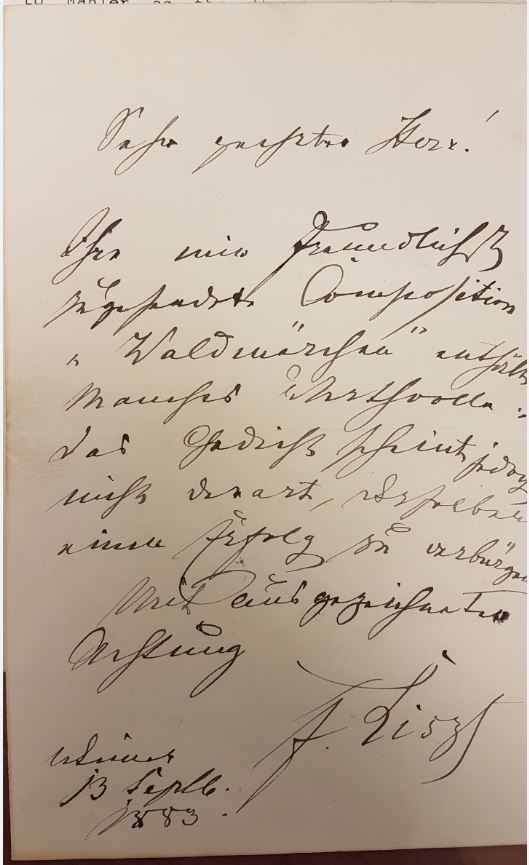 to Mahler as
Sehr geehrter Herr!
Ihre mir freundlichst
zugesendete Composition
„Waldmärchen" enthält
Manches Werthvolle:
das Gedicht scheint jedoch
nicht derart, derselben
einen Erfolg zu verbürgen
Mit ausgezeichneter
Achtung
F. Liszt
Weimar
13 Septb.
1883.